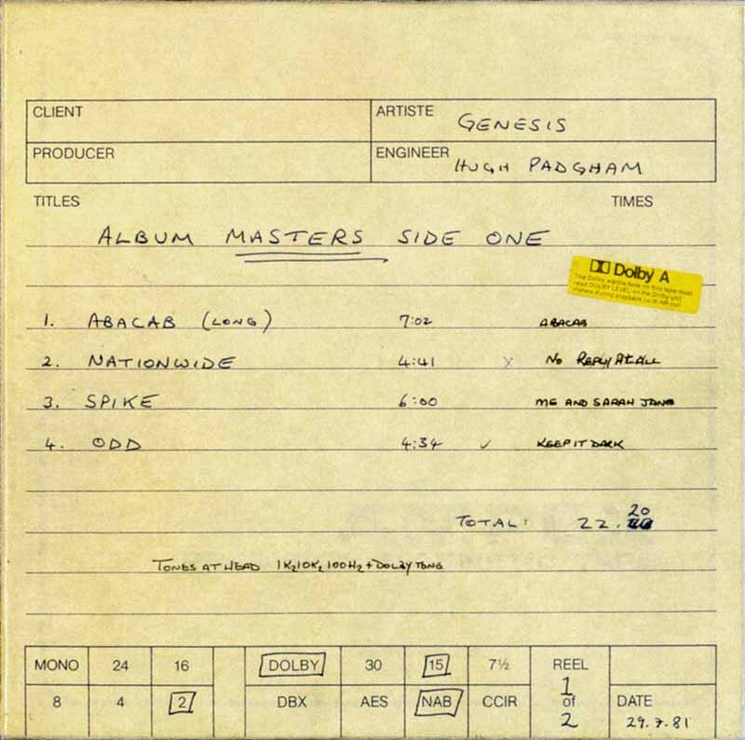 CLIENT ARTISTE GENESIS
PRODUCER ENGINEER HUGH PADGHAM
TITLES TIMES
ALBUM MASTERS SIDE ONE
Dolby A
The Dolby
read DOLBY LEVEL on the Dolby unit
meters during playback
1. ABACAB (LONG) 7:02 ABACAB
2. NATIONWIDE 4:41 x No REPLY At ALL
3. SPIKE 6:00 ME AND SARAH JANE
4. ODD 4:34 ✓ KEEP IT DARK
TOTAL: 22.20
TONES AT HEAD 1Kz 10Kz 100Hz + DOLBY TONE
MONO 24 16 DOLBY 30 15 7½ REEL
8 4 2 DBX AES NAB CCIR 1 of 2 DATE
29.7.81